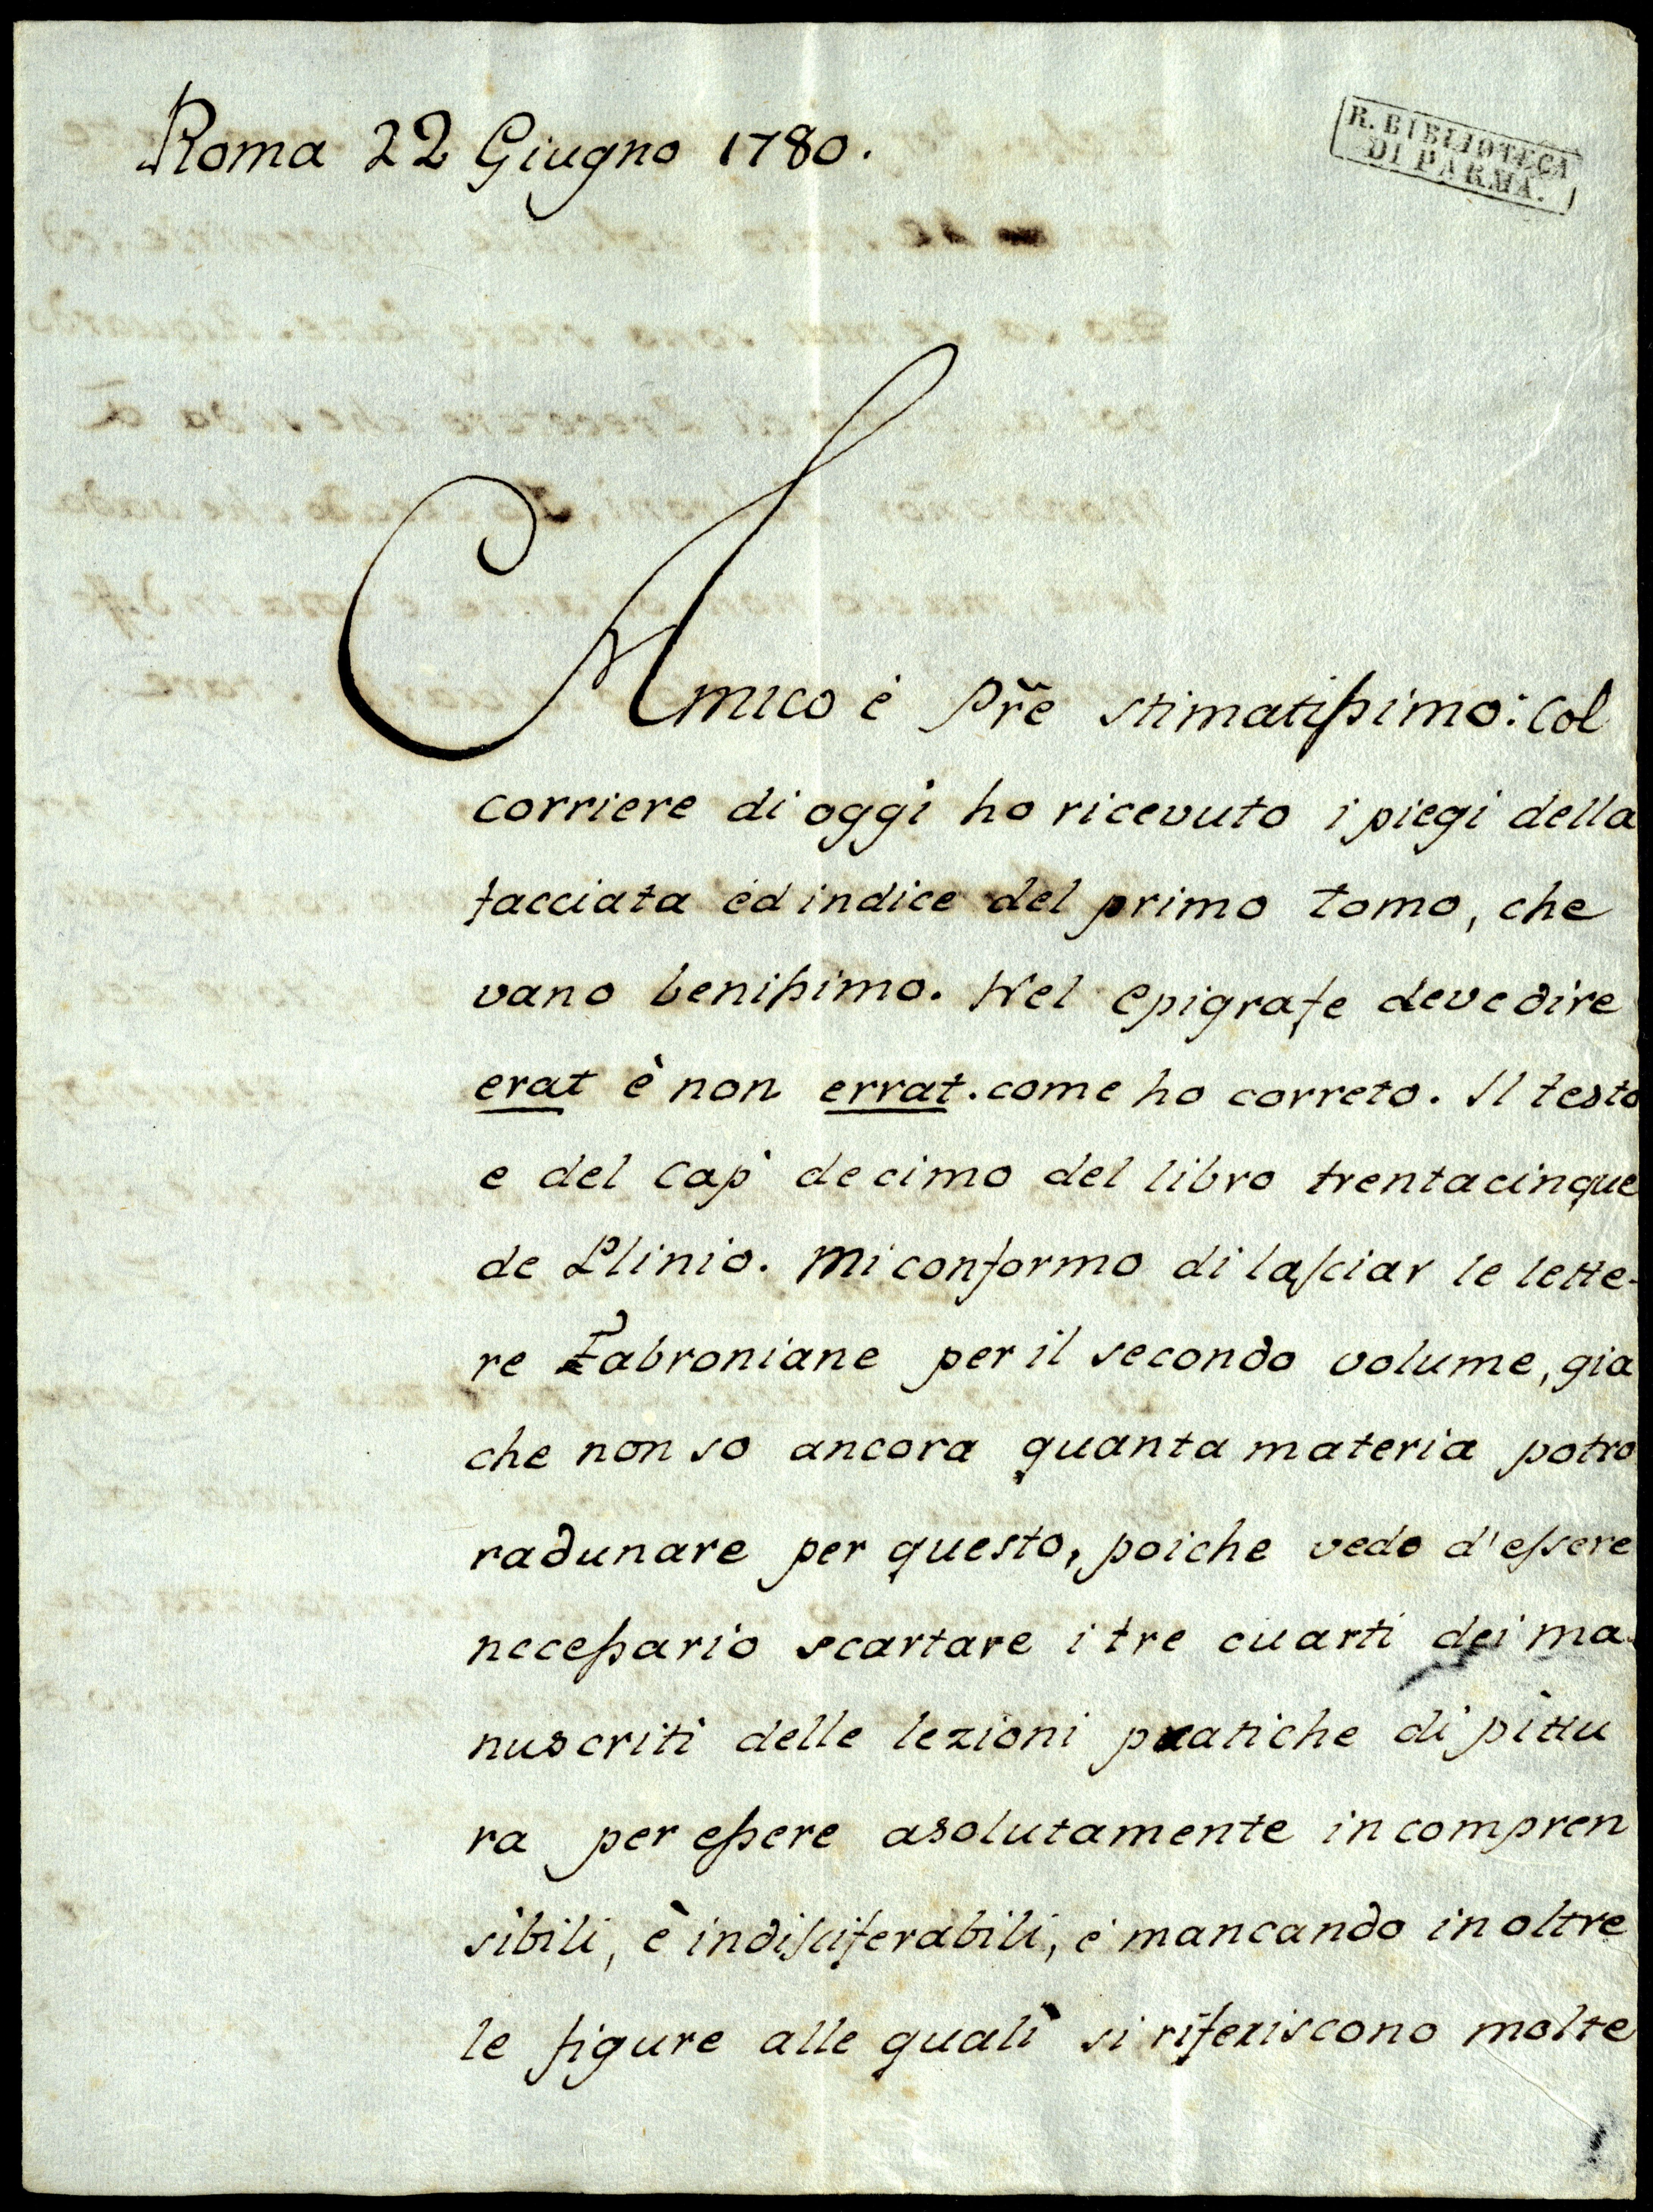 Roma 22 Giugno 1780.
R. BIBLIOTECA
DI PARMA.
Amico è Pr̃e stimatissimo: Col
corriere di oggi ho ricevuto i piegi della
facciata ed indice del primo tomo, che
vano benissimo. Nel epigrafe deve dire
erat è non errat. come ho correto. Il testo
e del Cap decimo del libro trentacinque
de Plinio. Mi conformo di lasciar le lette-
re Fabroniane per il secondo volume, gia
che non so ancora quanta materia potro
radunare per questo, poiche vedo d'essere
necessario scartare i tre cuarti dei ma-
nuscriti delle lezioni pratiche di pittu
ra per essere asolutamente incompren
sibili, è indisciferabili, e mancando inoltre
le figure alle quali si riferiscono molte